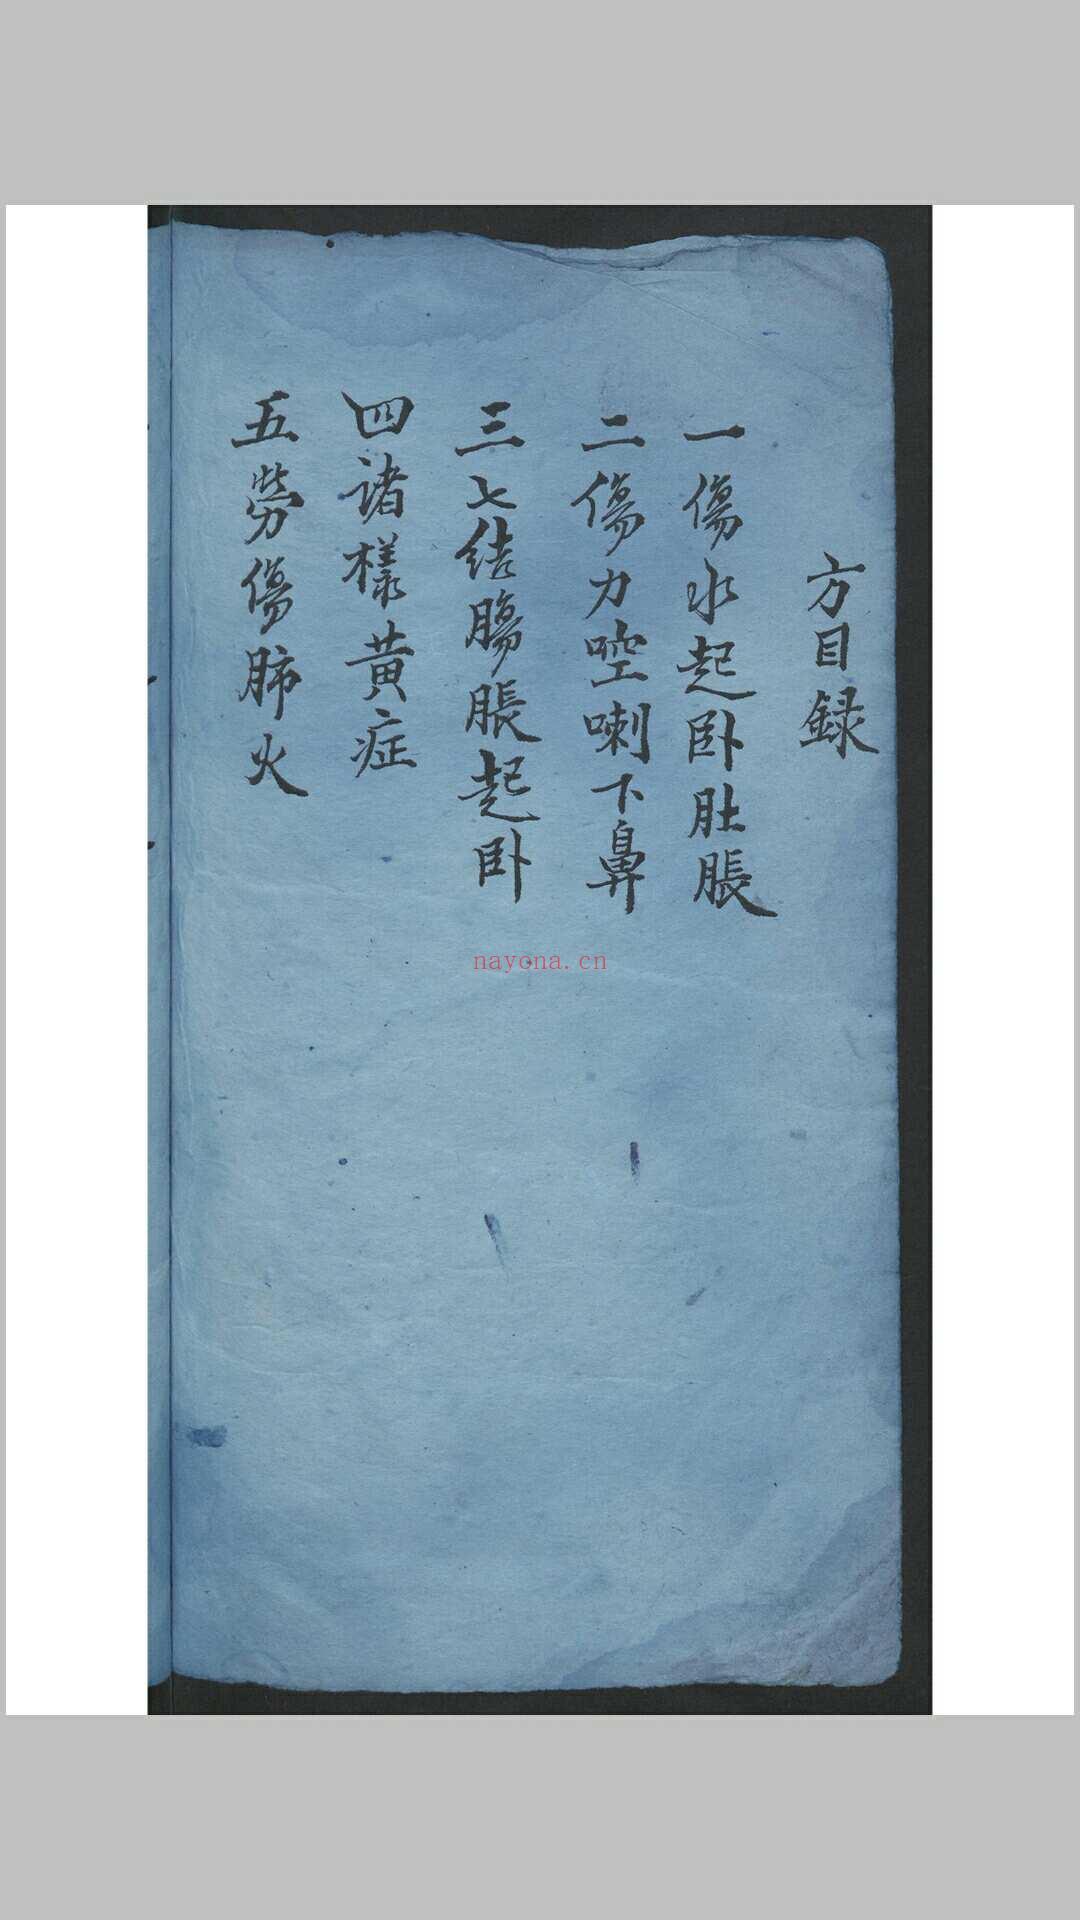 方目録
一傷水起卧肚脹
二傷力啌喇下鼻
三七结腸脹起卧
四诸樣黄症
五勞傷肺火
nayona.cn